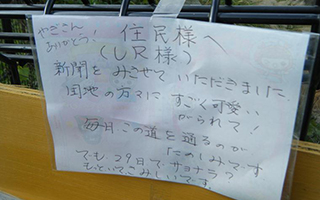 やぎさん
ありがとう!
住民様へ
(UR様)
新聞をみさせていただきました
団地の方々に すごく可愛い
がられて!
毎日この道を通るのが
たのしみです
でも、29日で、サヨナラ
もっといて
さみしいです。